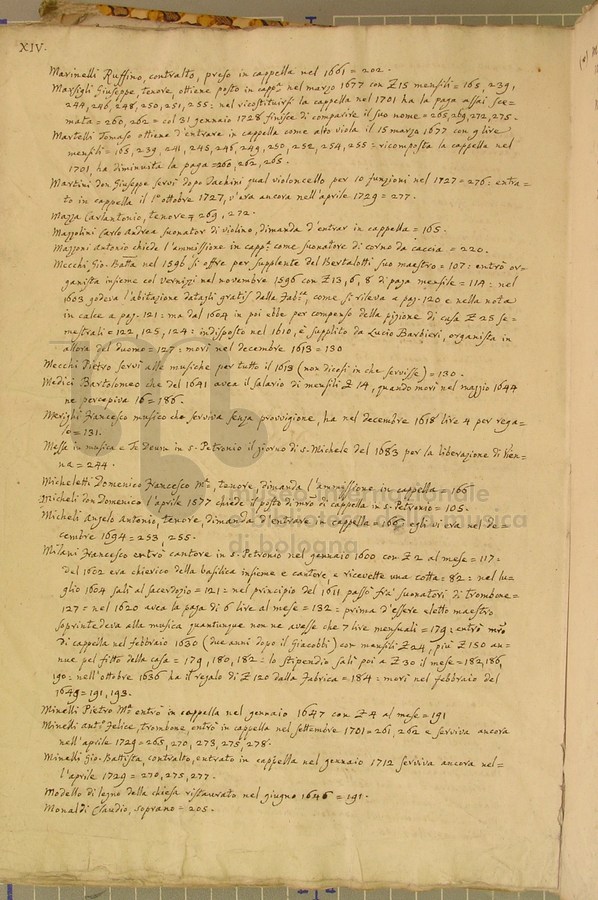 XIV.
Marinelli Ruffino, contralto, preso in cappella nel 1661 = 202.
Marsigli Giuseppe, tenore, ottiene posto in capp.ª nel marzo 1677 con £ 15 mensili = 165, 239,
244, 246, 248, 250, 251, 255: nel ricostituirsi la cappella nel 1701 ha la paga assai sce=
mata = 260, 262 = col 31 gennaio 1728 finisce di comparire il suo nome = 265, 269, 272, 275.
Martelli Tomaso ottiene d'entrare in cappella come alto viola il 15 marzo 1677 con 9 lire
mensili = 165, 239, 241, 245, 246, 249, 250, 252, 254, 255: ricomposta la cappella nel
1701, ha diminuita la paga = 260, 262, 265.
Martini don Giuseppe servì dopo Dachini qual violoncello per 10 funzioni nel 1727 = 276: entra=
to in cappella il 1º ottobre 1727, v'era ancora nell'aprile 1729 = 277.
Mazza Carlantonio, tenore = 269, 272.
Mazzolini Carlo Andrea suonator di violino, dimanda d'entrar in cappella = 165.
Mazzoni Antonio chiede l'ammissione in capp.ª come suonatore di corno da caccia = 220.
Mecchi Gio. Batta nel 1596 si offre per supplente del Bertalotti suo maestro = 107: entrò or=
ganista insieme col Vernizzi nel novembre 1596 con £ 13, 6, 8 di paga mensile = 114: nel
1603 godeva l'abitazione datagli gratis dalla Fab.ca, come si rileva a pag. 120 e nella nota
in calce a pag. 121: ma dal 1604 in poi ebbe per compenso della pigione di casa £ 25 se=
mestrali = 122, 125, 124: indisposto nel 1610, è supplito da Lucio Barbieri, organista in
allora del duomo = 127: morì nel decembre 1613 = 130
Mecchi Pietro servì alle musiche per tutto il 1613 (non dicesi in che servisse) = 130.
Medici Bartolomeo che del 1641 avea il salario di mensili £ 14, quando morì nel maggio 1644
ne percepiva 16 = 186.
Merighi Francesco musico che serviva senza provvigione, ha nel decembre 1618 lire 4 per rega=
lo = 131.
Messa in musica e Te Deum in s. Petronio il giorno di s. Michele del 1683 per la liberazione di Vien=
na = 244.
Micheletti Domenico Francesco M.ª, tenore, dimanda l'ammissione in cappella = 166
Micheli don Domenico l'aprile 1577 chiede il posto di m.ro di cappella in s. Petronio = 105.
Micheli Angelo Antonio, tenore, dimanda d'entrare in cappella = 166: egli vi era nel de=
cembre 1694 = 253, 255.
Milani Francesco entrò cantore in s. Petronio nel gennaio 1600 con £ 2 al mese = 117:
del 1602 era chierico della basilica insieme e cantore, e ricevette una cotta = 82: nel lu=
glio 1604 salì al sacerdozio = 121: nel principio del 1611 passò fra' suonatori di trombone =
127: nel 1620 avea la paga di 6 lire al mese = 132: prima d'essere eletto maestro
soprintedeva alla musica quantunque non ne avesse che 7 lire mensuali = 179: entrò m.ro
di cappella nel febbraio 1630 (due anni dopo il Giacobbi) con mensili £ 24, più £ 150 an=
nue pel fitto della casa = 179, 180, 182: lo stipendio salì poi a £ 30 il mese = 182, 186,
190: nell'ottobre 1636 ha il regalo di £ 120 dalla Fabrica = 184: morì nel febbraio del
1649 = 191, 193.
Minelli Pietro M.ª entrò in cappella nel gennaio 1647 con £ 4 al mese = 191
Minelli Ant.º Felice, trombone, entrò in cappella nel settembre 1701 = 261, 262 e serviva ancora
nell'aprile 1729 = 265, 270, 273, 275, 278.
Minelli Gio. Battista, contralto, entrato in cappella nel gennaio 1712 serviva ancora nel=
l'aprile 1729 = 270, 275, 277.
Modello di legno della chiesa ristaurato nel giugno 1646 = 191.
Monaldi Claudio, soprano = 205.
museo internazionale
e biblioteca della musica
di bologna